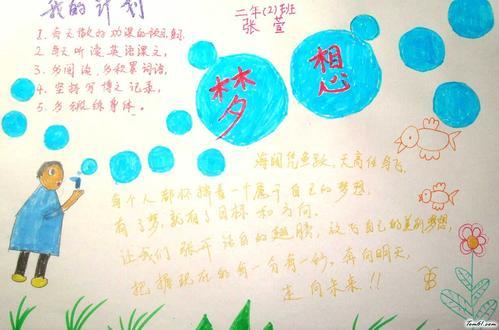 我的计划
1. 每天做好功课的预习
2. 每天听读英语课文,
3. 多阅读、多积累词语,
4. 坚持写博文记录,
5. 多锻练身体。
二年(2)班
张萱
梦想
海阔凭鱼跃,天高任鸟飞,
每个人都怀揣着一个属于自己的梦想,
有了梦,就有了目标和方向.
让我们张开洁白的翅膀,放飞自己的美丽梦想,
把握现在的每一分每一秒,奔向明天,
走向未来!!
Tom61.com